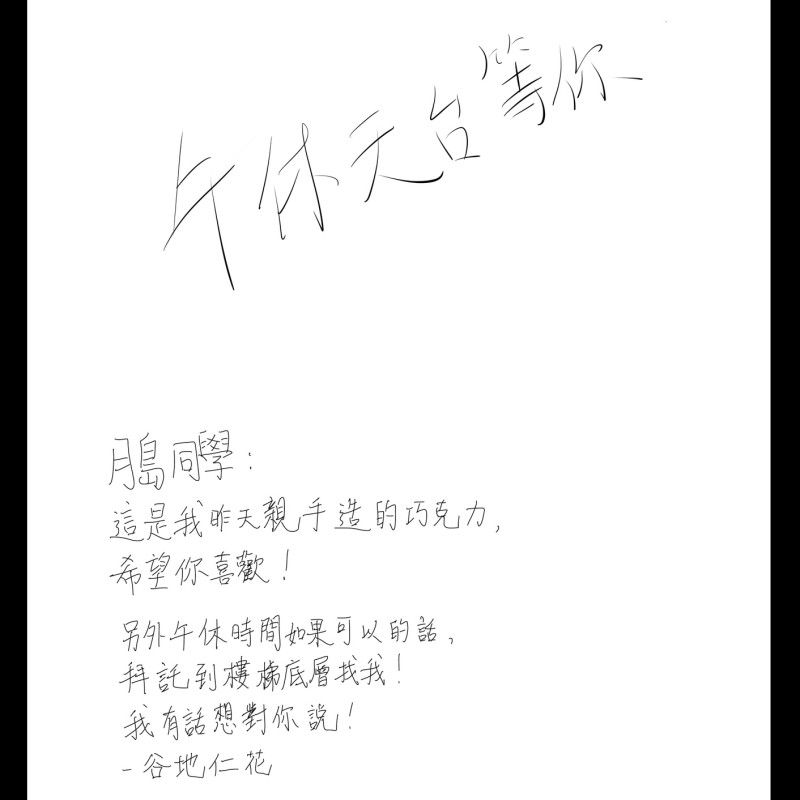 午休天台等你
月島同學：
這是我昨天親手造的巧克力,
希望你喜歡！
另外午休時間如果可以的話,
拜託到樓梯底層找我！
我有話想對你說！
-谷地仁花